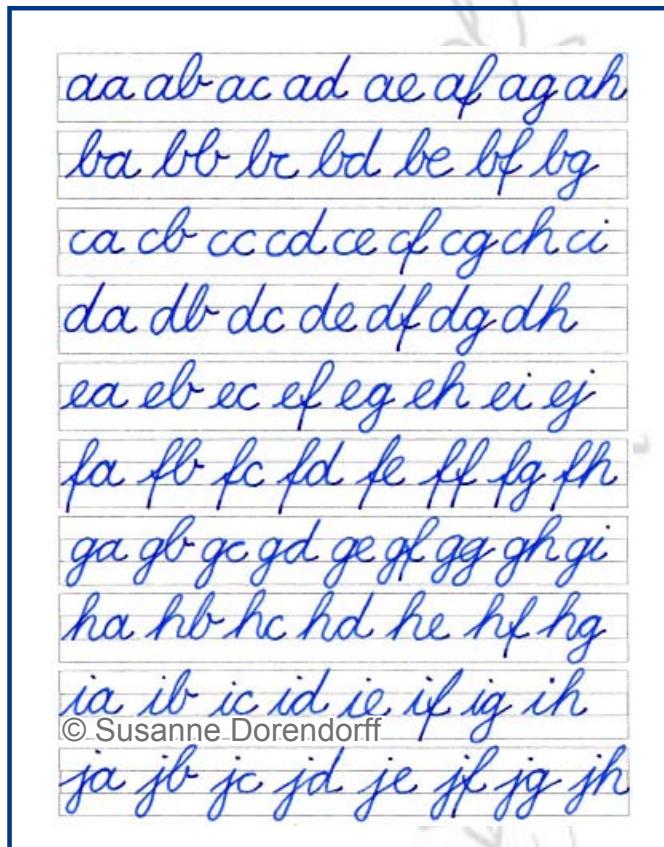 aa ab ac ad ae af ag ah
ba bb bc bd be bf bg
ca cb cc cd ce cf cg ch ci
da db dc de df dg dh
ea eb ec ef eg eh ei ej
fa fb fc fd fe ff fg fh
ga gb gc gd ge gf gg gh gi
ha hb hc hd he hf hg
ia ib ic id ie if ig ih
© Susanne Dorendorff
ja jb jc jd je jf jg jh